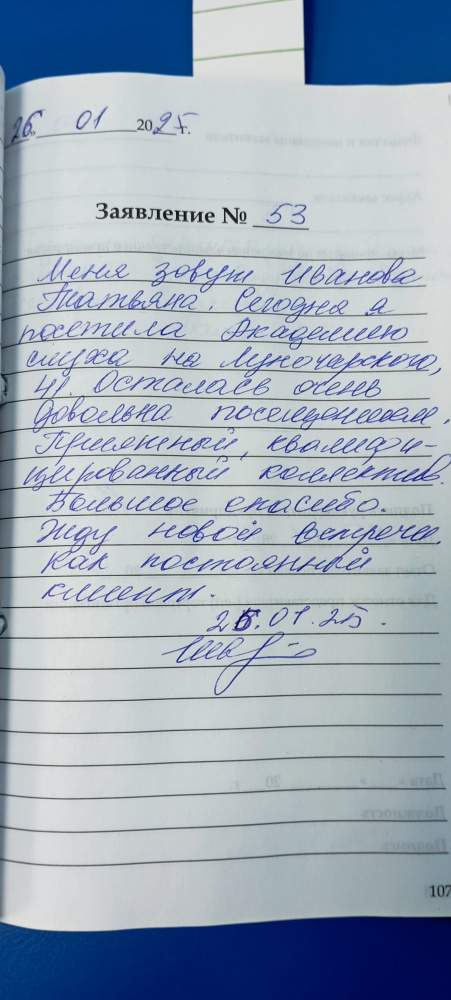 26. 01 2025г.
Заявление № 53
Меня зовут Иванова
Татьяна. Сегодня я
посетила Академию
слуха на Луночарского,
41. Осталась очень
довольна посещением.
Приятный, квалифи-
цированный коллектив.
Большое спасибо.
Жду новой встречи
как постоянный
клиент.
26.01.25.
107